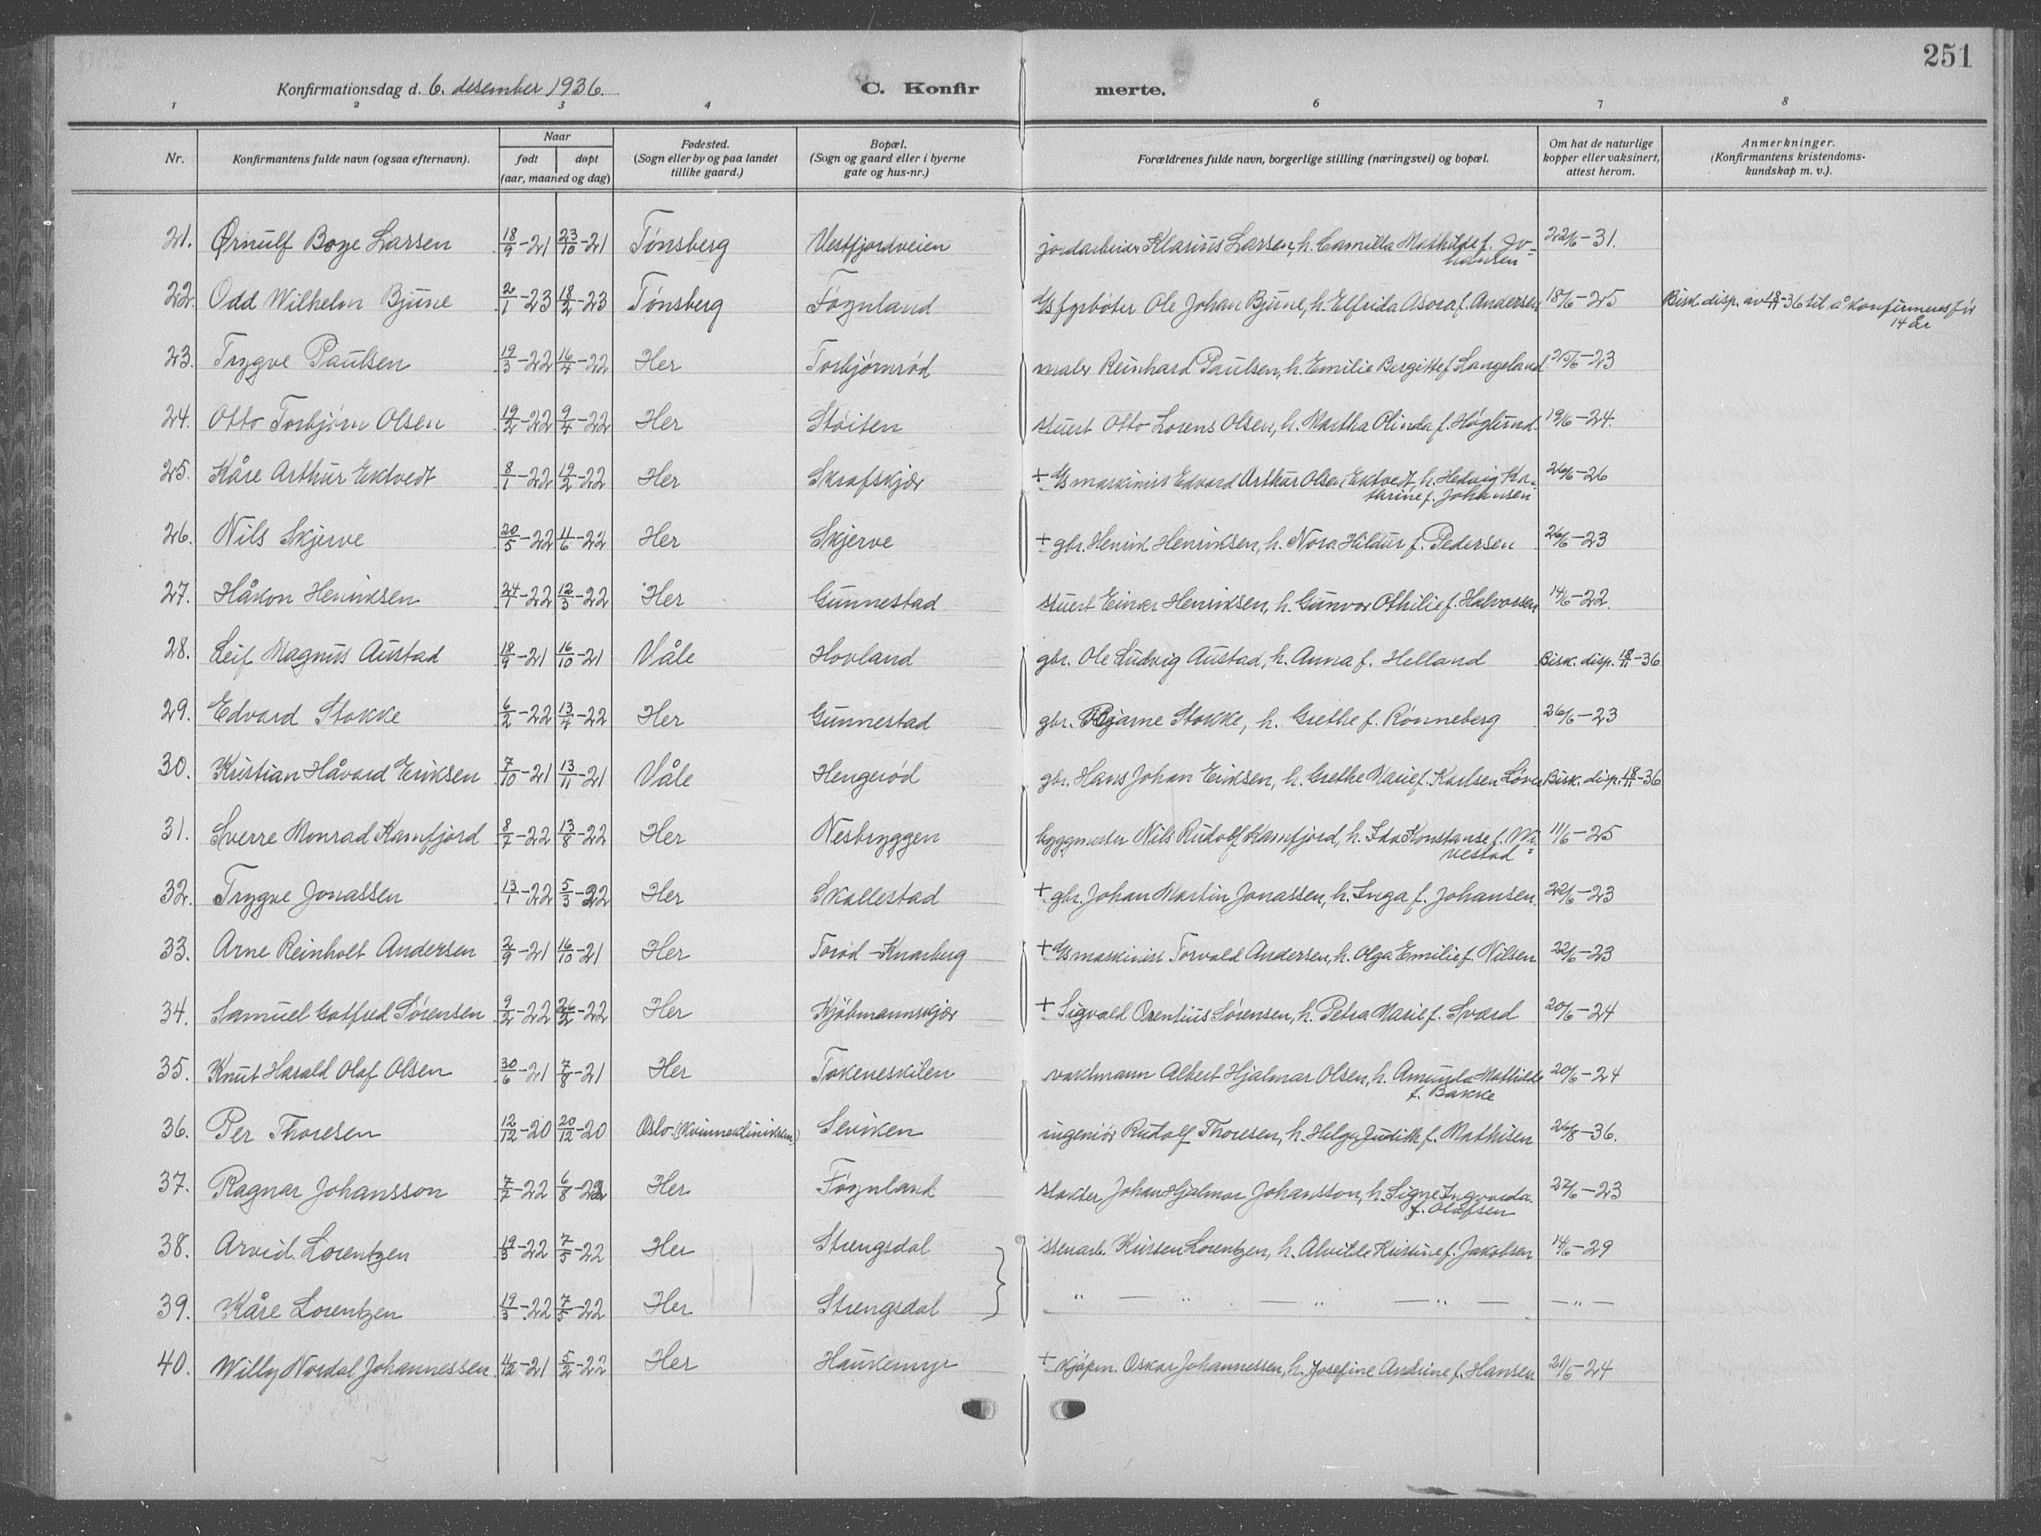 251
Konfirmationsdag d. 6. desember 1936. C. Konfirmerte.
1 2 3 4 6 7 8
Nr. | Konfirmantens fulde navn (ogsaa efternavn). | Naar født døpt (aar, maaned og dag) | Fødested. (Sogn eller by og paa landet tillike gaard.) | Bopæl. (Sogn og gaard eller i byerne gate og hus-nr.) | Forældrenes fulde navn, borgerlige stilling (næringsvei) og bopæl. | Om hat de naturlige kopper eller vaksinert, attest herom. | Anmerkninger. (Konfirmantens kristendomskundskap m. v.).
21. Ørnulf Boye Larsen 18/9-21 23/10-21 Tønsberg Vestfjordveien jordarbeider Klarius Larsen, h. Camilla Mathilde f. Johansen 22/6-31.
22. Odd Wilhelm Bjune 2/1-23 18/2-23 Tønsberg Føynland Hs fyrbøter Ole Johan Bjune, h. Elfrida Asora f. Andersen 18/6-25 Bisk. disp. av 18/11-36 til å konfirmeres før 14 år
23. Trygve Paulsen 19/3-22 16/4-22 Her Torbjørnrød maler Reinhard Paulsen, h. Emilie Bergitte f. Langeland 25/6-23
24. Otto Torbjørn Olsen 19/2-22 9/4-22 Her Støiten stuert Otto Lorens Olsen, h. Martha Olinda f. Høglund 19/6-24.
25. Kåre Arthur Ektvedt 8/1-22 19/2-22 Her Skrafskjær + Hs maskinist Edvard Arthur Olsen Ektvedt, h. Hedvig Kathrine f. Johansen 26/6-26
26. Nils Skjerve 20/5-22 11/6-22 Her Skjerve + gbr. Henrik Henriksen, h. Nora Hildur f. Pedersen 26/6-23
27. Håkon Henriksen 24/1-22 12/3-22 Her Gunnestad stuert Einar Henriksen, h. Gunvor Othilie f. Halvorsen 14/6-22.
28. Leif Magnus Austad 18/9-21 16/10-21 Våle Hovland gbr. Ole Ludvig Austad, h. Anna f. Helland Bisk. disp. 18/11-36
29. Edvard Stokke 6/2-22 13/4-22 Her Gunnestad gbr. Bjarne Stokke, h. Grethe f. Rønneberg 26/6-23
30. Kristian Håvard Eriksen 7/10-21 13/11-21 Våle Hengsrød gbr. Hans Johan Eriksen, h. Grethe Marie f. Karlsen Bisk. disp. 18/11-36
31. Sverre Monrad Kamfjord 8/7-22 13/8-22 Her Nesbryggen byggmester Nils Rudolf Kamfjord, h. Ida Konstanse f. Mivestad 11/6-25
32. Trygve Jonassen 13/1-22 5/3-22 Her Skallestad + gbr. Johan Martin Jonassen, h. Inga f. Johansen. 22/6-23
33. Arne Reinholt Andersen 2/9-21 16/10-21 Her Torød-Knarberg + Hs maskinist Torvald Andersen, h. Olga Emilie f. Nilsen 22/6-23
34. Samuel Gotfred Sørensen 9/2-22 26/2-22 Her Kjøbmannskjær + Sigvald Orentius Sørensen, h. Petra Marie f. Sværd 20/6-24
35. Knut Harald Olaf Olsen 30/6-21 7/8-21 Her Tokeneskilen vaktmann Albert Hjalmar Olsen, h. Amunda Mathilde f. Bakke 20/6-24
36. Per Thoresen 12/12-20 20/12-20 Oslo (Kvinneklinikken) Seviken ingeniør Rudolf Thoresen, h. Helga Judith f. Mathisen 26/8-36.
37. Ragnar Johansson 7/7-22 6/8-22 Her Føynland slakter Johan Hjalmar Johansson, h. Signe Ingvarda f. Olafsen 27/6-23
38. Arvid Lorentzen 19/3-22 7/5-22 Her Strengsdal stenarb. Lorentzen, h. Alvilde Kristine f. Jakobsen 14/6-29
39. Kåre Lorentzen 19/3-22 7/5-22 Her Strengsdal " — " " — " — — " —
40. Willy Nordal Johannessen 4/12-21 5/2-22 Her Haukemyr + kjøpm. Oskar Johannessen, h. Josefine Andrine f. Hansen 21/6-24